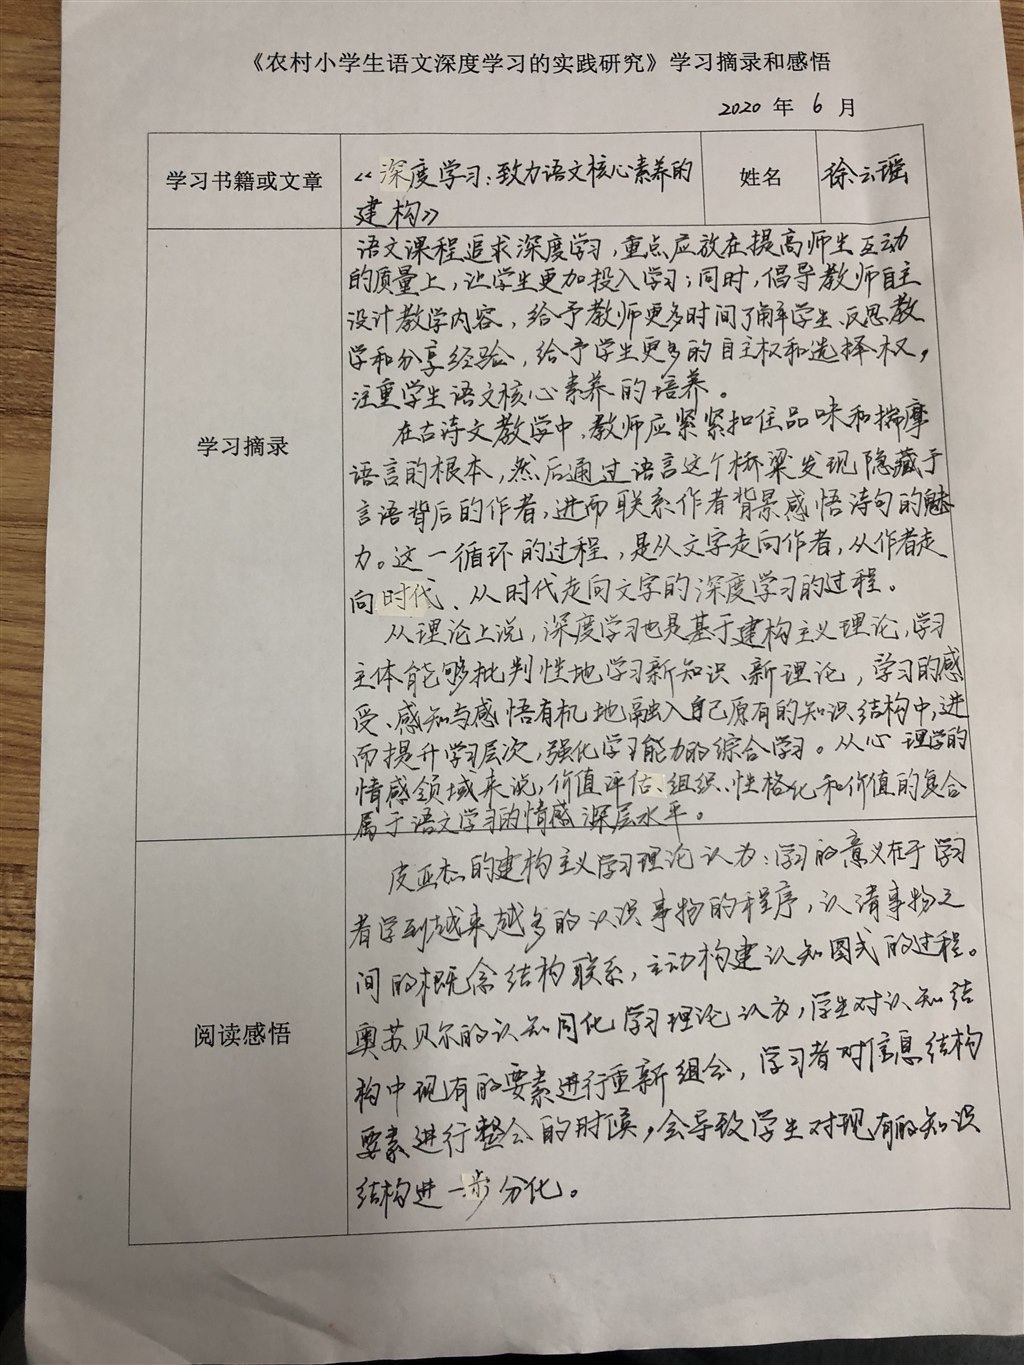 《农村小学生语文深度学习的实践研究》学习摘录和感悟
2020 年 6 月
学习书籍或文章
《深度学习：致力语文核心素养的
建构》
姓名
徐云瑶
学习摘录
语文课程追求深度学习，重点应放在提高师生互动
的质量上，让学生更加投入学习；同时，倡导教师自主
设计教学内容，给予教师更多时间了解学生、反思教
学和分享经验，给予学生更多的自主权和选择权，
注重学生语文核心素养的培养。
在古诗文教学中，教师应紧紧扣住品味和揣摩
语言的根本，然后通过语言这个桥梁发现隐藏于
言语背后的作者，进而联系作者背景感悟诗句的魅
力。这一循环的过程，是从文字走向作者，从作者走
向时代、从时代走向文字的深度学习的过程。
从理论上说，深度学习也是基于建构主义理论，学习
主体能够批判性地学习新知识、新理论，学习的感
受、感知与感悟有机地融入自己原有的知识结构中，进
而提升学习层次，强化学习能力的综合学习。从心理学的
情感领域来说，价值评估、组织、性格化和价值的复合
属于语文学习的情感深层水平。
阅读感悟
皮亚杰的建构主义学习理论认为：学习的意义在于学习
者学到越来越多的认识事物的程序，认清事物之
间的概念结构联系，主动构建认知图式的过程。
奥苏贝尔的认知同化学习理论认为，学生对认知结
构中现有的要素进行重新组合，学习者对信息结构
要素进行整合的时候，会导致学生对现有的知识
结构进一步分化。